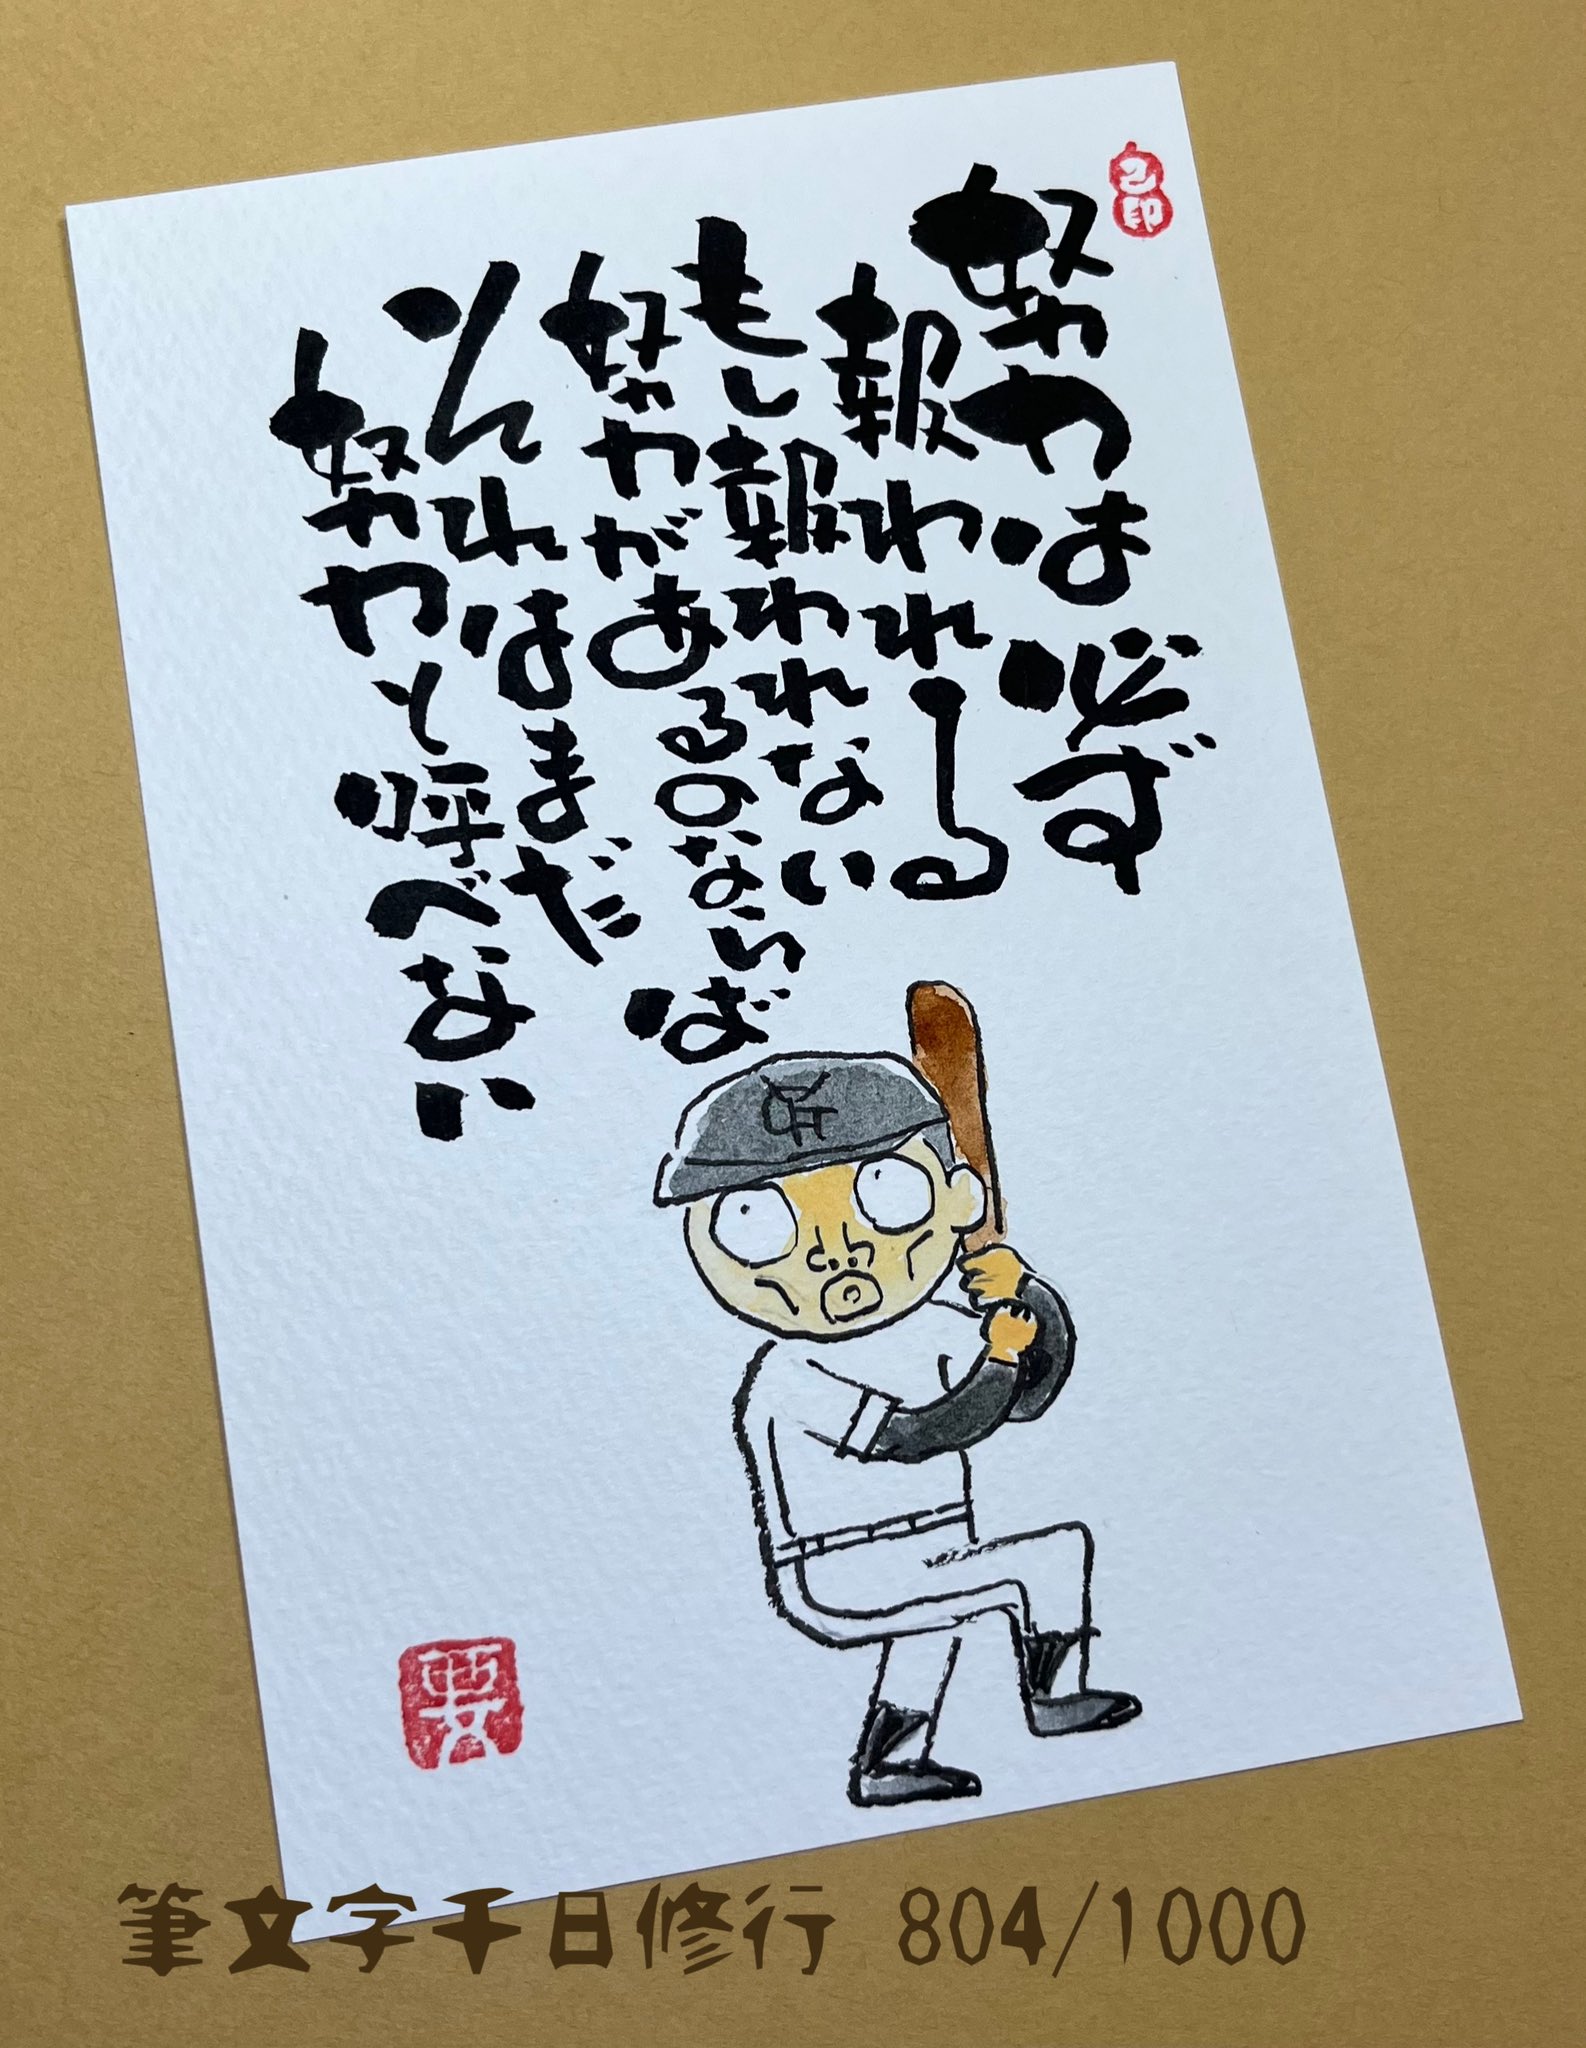 己印
努力は必ず
報われる
もし報われない
努力があるのならば
それはまだ
努力と呼べない
YG
要
筆文字千日修行 804/1000